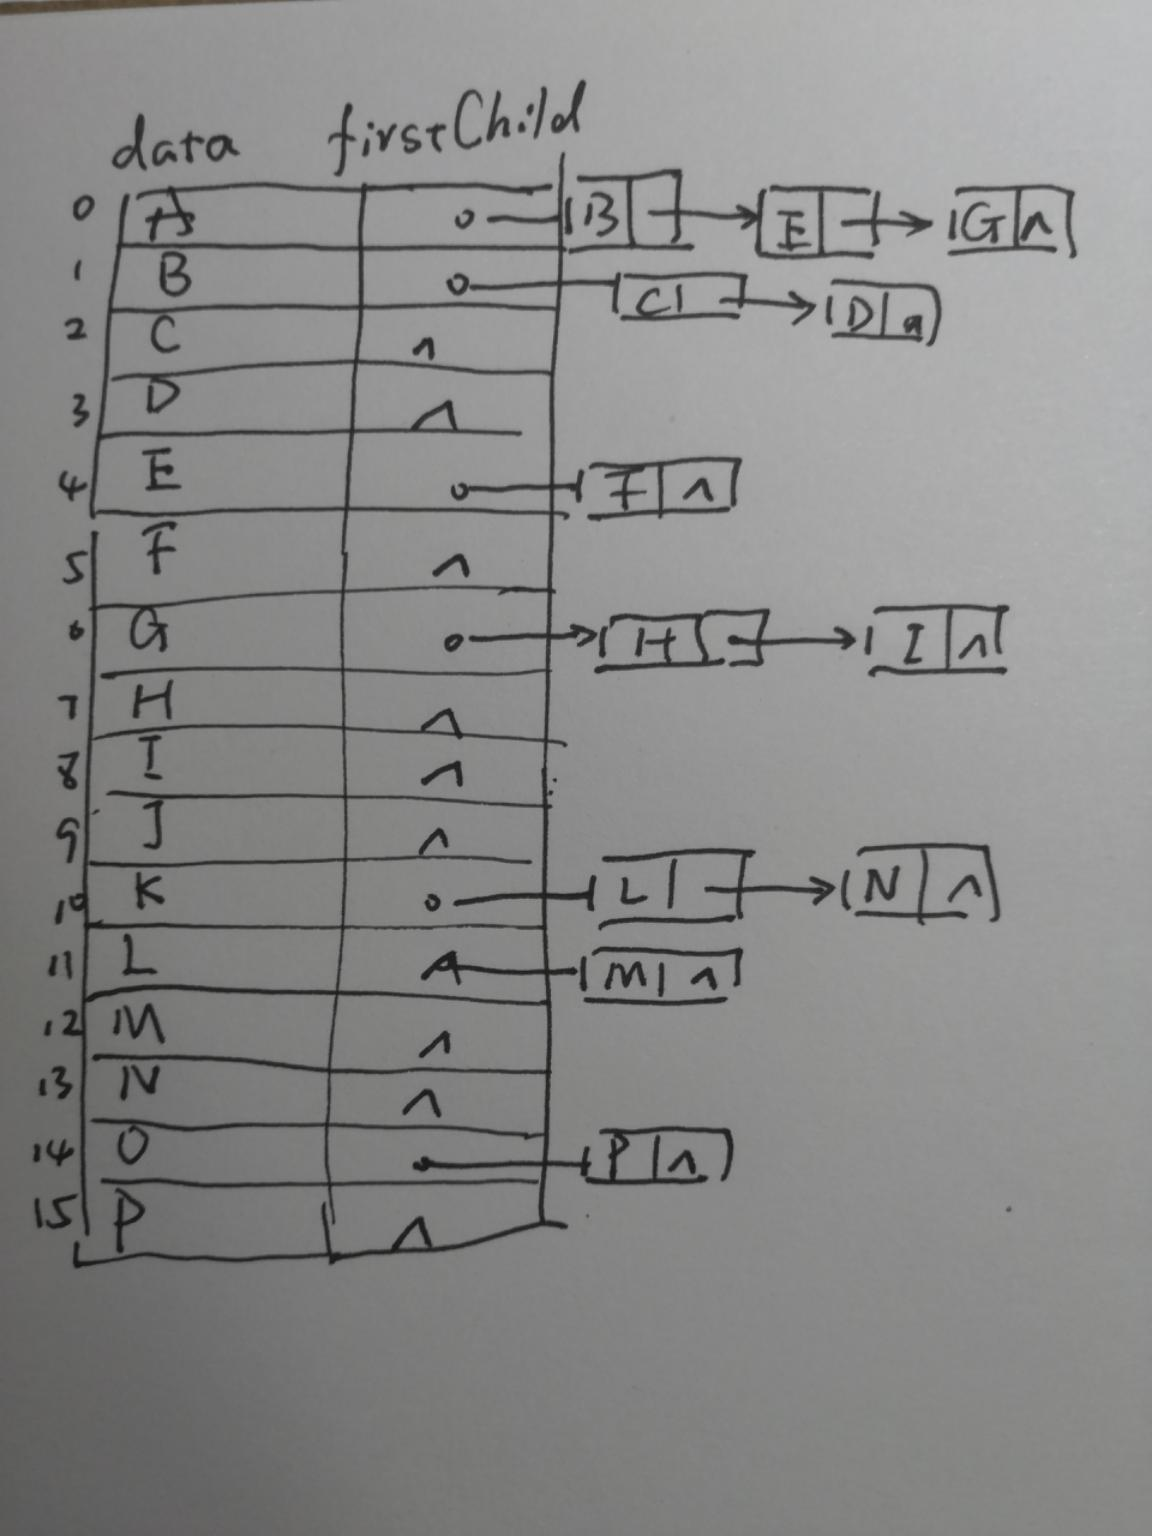 data firstChild
0 A B E G ∧
1 B C D ∧
2 C ∧
3 D ∧
4 E F ∧
5 F ∧
6 G H I ∧
7 H ∧
8 I ∧
9 J ∧
10 K L N ∧
11 L M ∧
12 M ∧
13 N ∧
14 O P ∧
15 P ∧